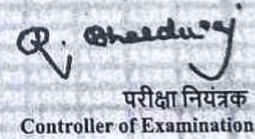 R. Bhardwaj
परीक्षा नियंत्रक
Controller of Examination